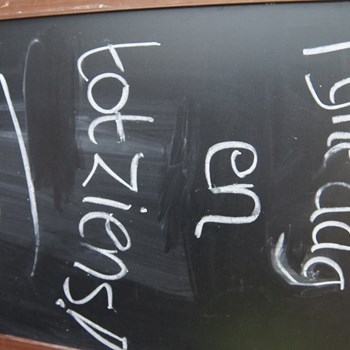 Fijne dag
en
tot ziens!